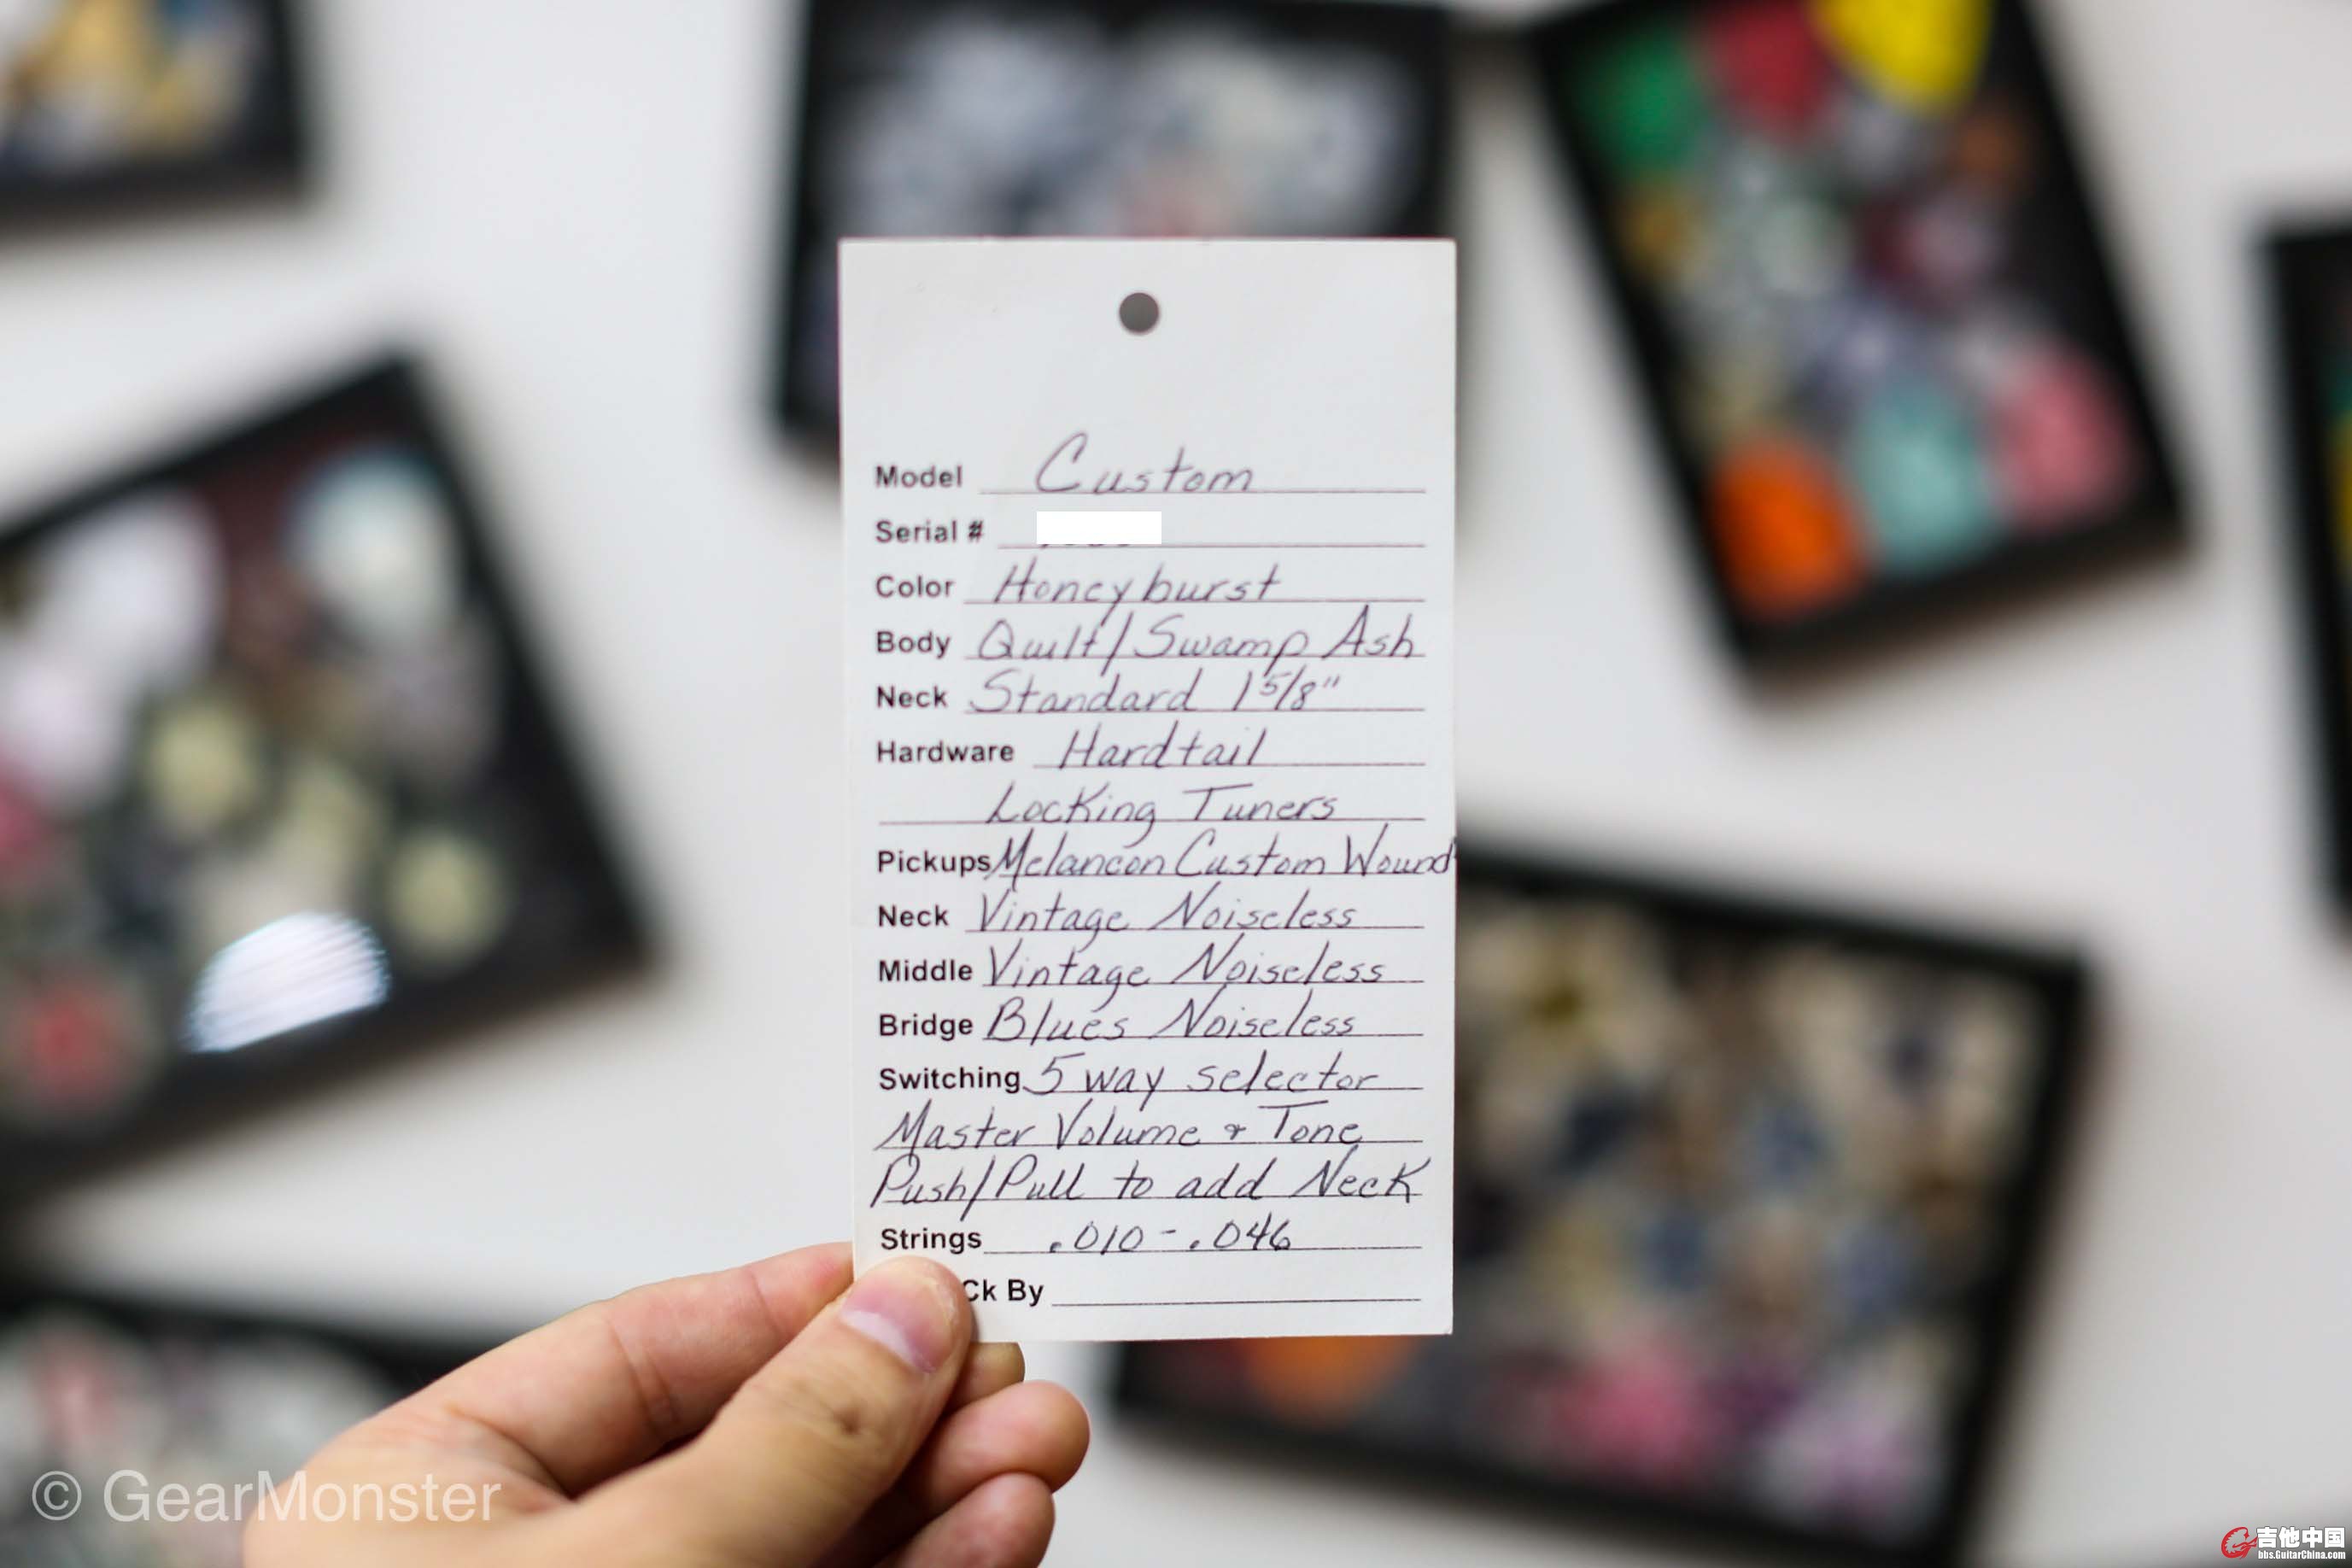 Model Custom
Serial #
Color Honeyburst
Body Quilt/Swamp Ash
Neck Standard 1 5/8"
Hardware Hardtail
Locking Tuners
Pickups Melancon Custom Wound
Neck Vintage Noiseless
Middle Vintage Noiseless
Bridge Blues Noiseless
Switching 5 way selector
Master Volume & Tone
Push/Pull to add Neck
Strings .010-.046
Ck By
© GearMonster
吉他中国
bbs.GuitarChina.com